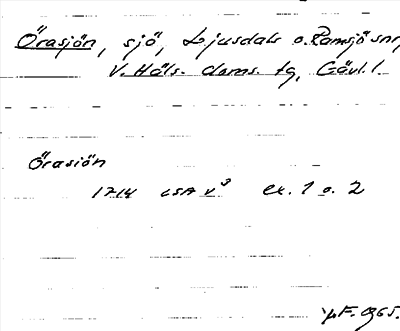 Örasjön, sjö, Ljusdals o. Ramsjö snr,
V. Häls. doms. tg, Gävl. l.
Örasiön
1714 LSA V³ ex. 1 o. 2
1965.